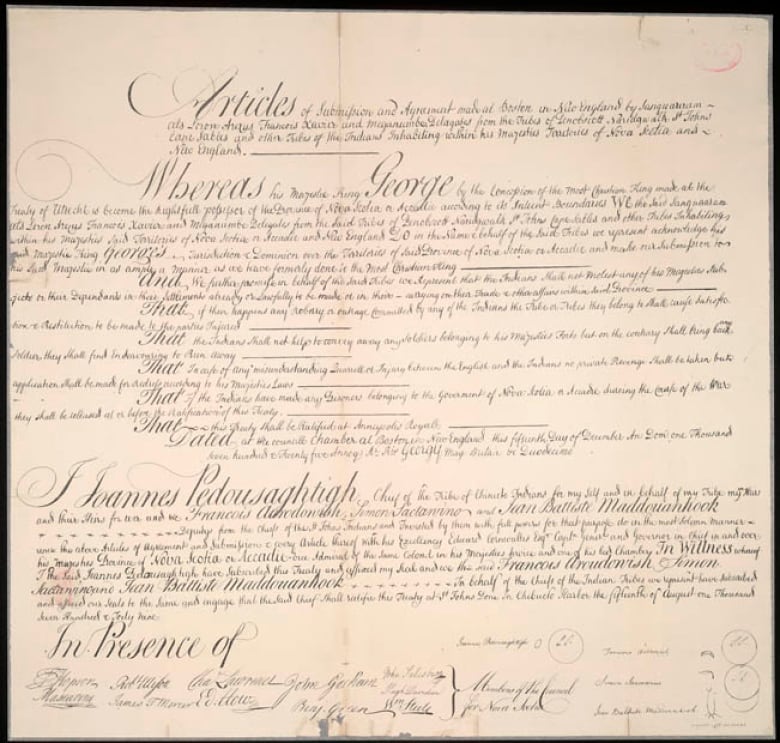 Articles of Submission and Agreement made at Boston in New England by Sanguaaram
als Loron Arexus François Xavier and Meganumbe Delagates from the Tribes of Penobscott Naridgwalk St Johns
Cape Sables and other Tribes of the Indians Inhabiting within his Majesties Territories of Nova Scotia and
New England.
Whereas his Majestie King George by the Concession of the Most Christian King made at the
Treaty of Utrecht is become the Rightfull possessor of the Province of Nova Scotia or Accadie according to its Antient Boundaries WE the Said Sanguaaram
als Loron Arexus Francois Xavier and Meganumbe Delegates from the Said Tribes of Penobscott Naridgwalk St Johns Cape Sables and other Tribes Inhabiting
within his Majesties Said Territories of Nova Scotia or Accadie and New England DO in the Name & behalf of the Said Tribes we represent acknowledge his
Said Majestie King George's Jurisdiction & Dominion over the Territories of Said Province of Nova Scotia or Accadie and make our Submission to
his Said Majestie in as ample a Manner as we have formerly done to the Most Christian King
And We further promise in behalf of the Said Tribes we Represent that the Indians Shall not Molest any of his Majesties Sub-
jects or their Dependants in their Settlements already or Lawfully to be made or in their carrying on their Trade & other affairs within Said Province
That if there happens any Robery or outrage Committed by any of the Indians the Tribe or Tribes they belong to Shall cause Satisfac
tion & Restitution to be made to the parties Injured
That the Indians Shall not help to convey away any Soldiers belonging to his Majesties Forts but on the contrary Shall bring back any
Soldier they Shall find Endeavouring to Run away
That In case of any misunderstanding Quarrell or Injury between the English and the Indians no private Revenge Shall be taken but
application Shall be made for redress according to his Majesties Laws
That If the Indians have made any Prisoners belonging to the Goverment of Nova Scotia or Accadie dureing the Course of the War
they Shall be released at or before the Ratification of this Treaty.
That this Treaty Shall be Ratified at Annapolis Royall
Dated at the Councill Chamber at Boston in New England this fifteenth Day of December An Dom one Thousand
Seven hundred & Twenty five Annoq Ri Ris Georgii Mag Britan &c Duodecimo
I Joannes Pedousaghtigh Chief of the Tribe of Chinecto Indians for my Self and in behalf of my Tribe my Heirs
and their Heirs for ever and we Francois Aroudowish, Simon Sactawino and Jean Battiste Maddouanhook
Deputys from the chiefs of the St Johns Indians and Invested by them with full powers for that purpose do in the most Solemn Manner
renew the above Articles of Agreement and Submission & every Article thereof with his Excellency Edward Cornwallis Esqr Captn Genl and Governor in Chief in and over
his Majesties Province of Nova Scotia or Accadie vice Admiral of the Same Colonel in his Majesties Service and one of his bed Chamber. In Witness whereof
I the Said Joannes Pedousaghtigh have Subscribed this Treaty and affixed my Seal and we the Said Francois Aroudowish Simon
Sactawino and Jean Battiste Maddouanhook In behalf of the Chiefs of the Indian Tribes we represent have Subscribed
and affixed our Seals to the Same and engage that the Said Chiefs Shall ratifie this Treaty at St Johns Done In Chibucto Harbor the fifteenth of August one Thousand
Seven Hundred & Forty Nine
In Presence of
John Gorham
Benj. Green
Ed. How
John Salisbury
Hugh Davidson
Wm Steele
Members of the Council
for Nova Scotia